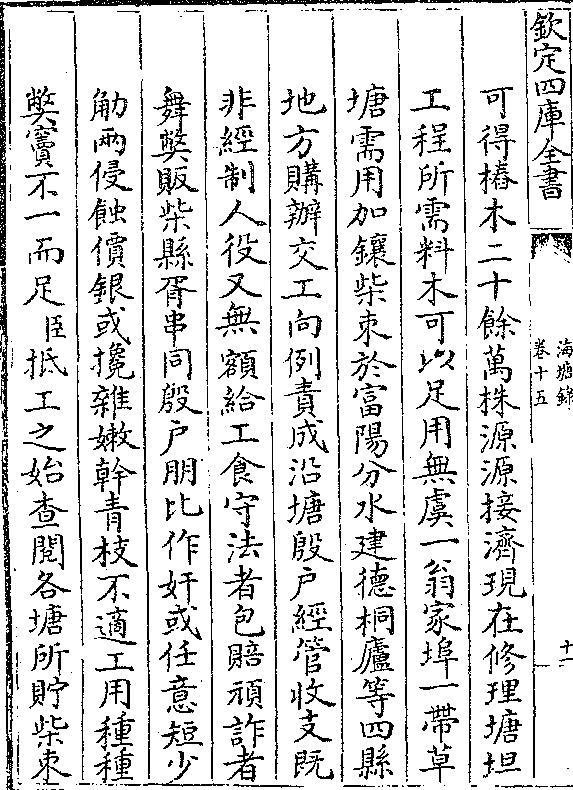 欽定四庫全書
海塘錄
卷十五
十一
可得樁木二十餘萬株源源接濟現在修理塘坦
工程所需料木可以足用無虞一翁家埠一帶草
塘需用加鑲柴束於富陽分水建德桐廬等四縣
地方購辦交工向例責成沿塘殷户經管收支既
非經制人役又無額給工食守法者包賠頑詐者
舞獘販柴縣胥串同殷户朋比作奸或任意短少
觔兩侵蝕價銀或攙雜嫩幹青枝不適工用種種
獘竇不一而足臣抵工之始查閱各塘所貯柴束